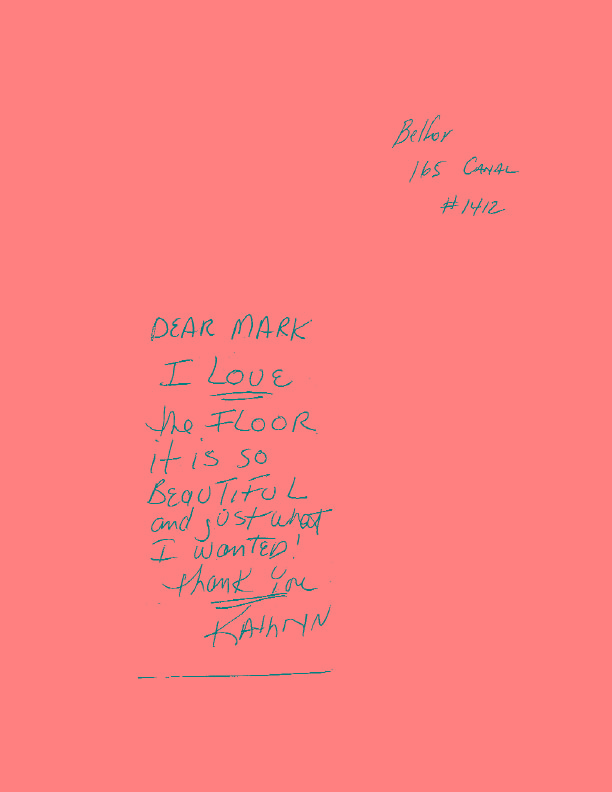 Belfor
165 CANAL
#1412
DEAR MARK
I LOVE
the FLOOR
it is so
BEAUTIFUL
and just what
I wanTED!
thank you
KAthrYN